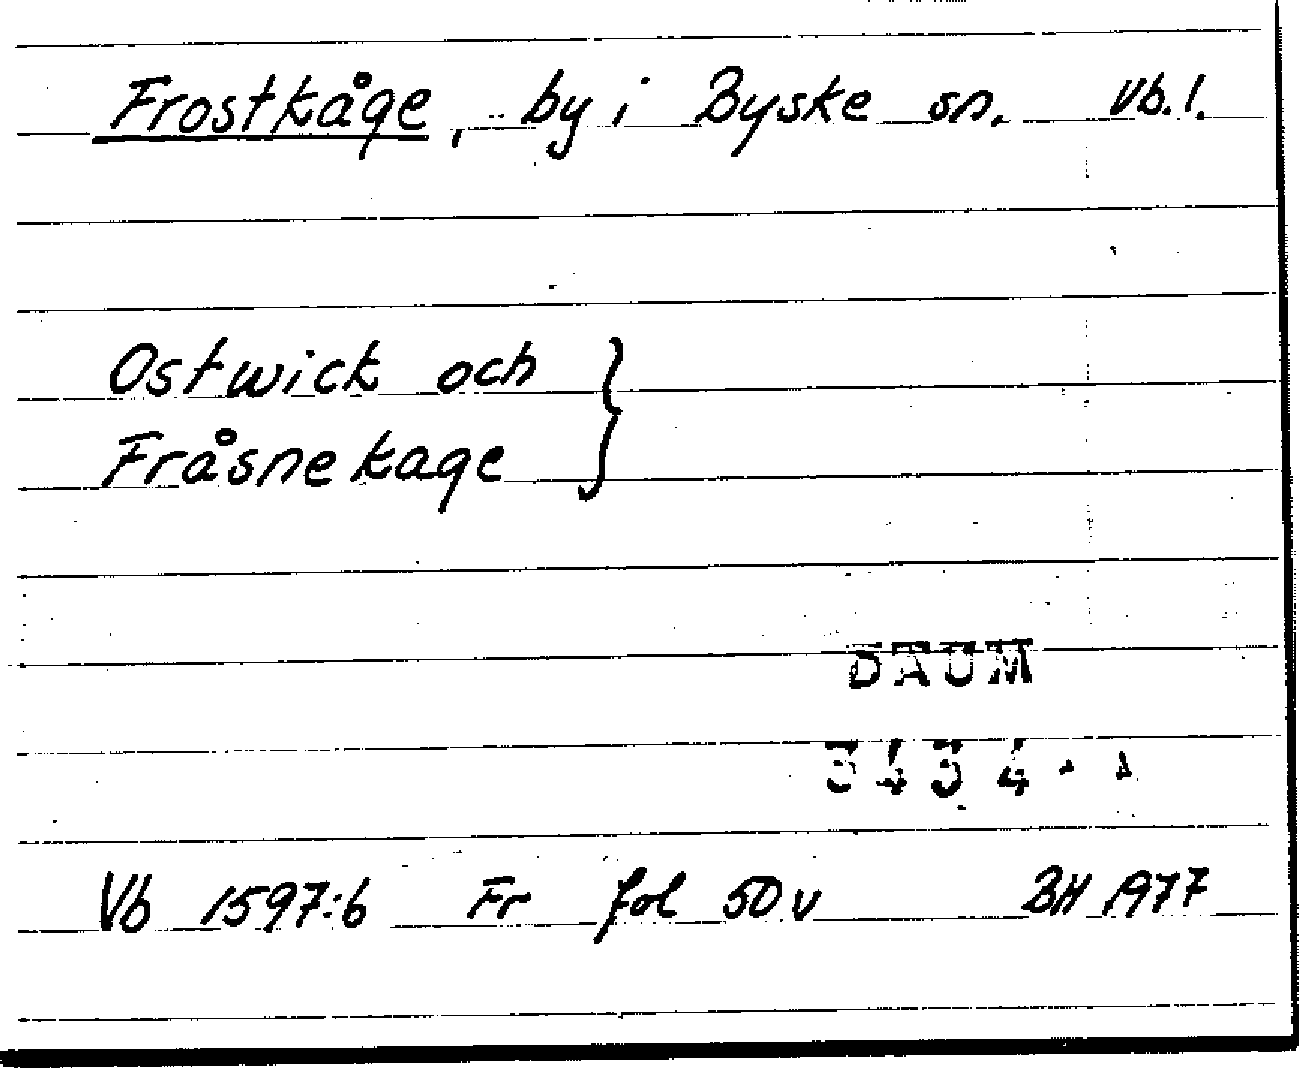 Frostkåge, by i Byske sn. Vb. l.
Ostwick och
Fråsnekage }
DAUM
3434
Vb 1597:6 Fr fol 50 v BH 1977